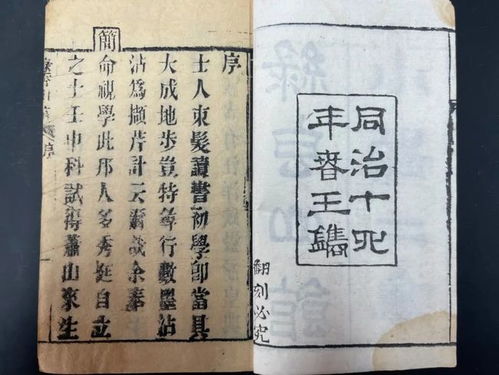 同治十四
年春王鐫
翻刻必究
序
士人束髮讀書初學卽當具
大成地步豈特尋行數墨沾
沾爲擷芹計云爾哉余奉
簡命視學此邦人多秀挺自立
之士壬申科試得蕭山來生
序